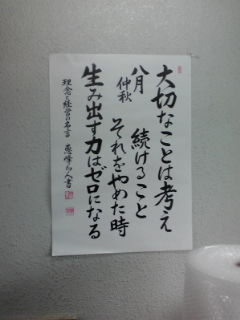 大切なことは考え
続けること
八月 仲秋
それをやめた時
生み出す力はゼロになる
理念と経営の名言 恵峰ちん書